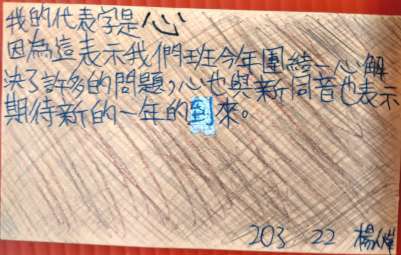 我的代表字是心
因為這表示我們班今年團結一心解
決了許多的問題,心也與新同音也表示
期待新的一年的到來。
203 22 楊